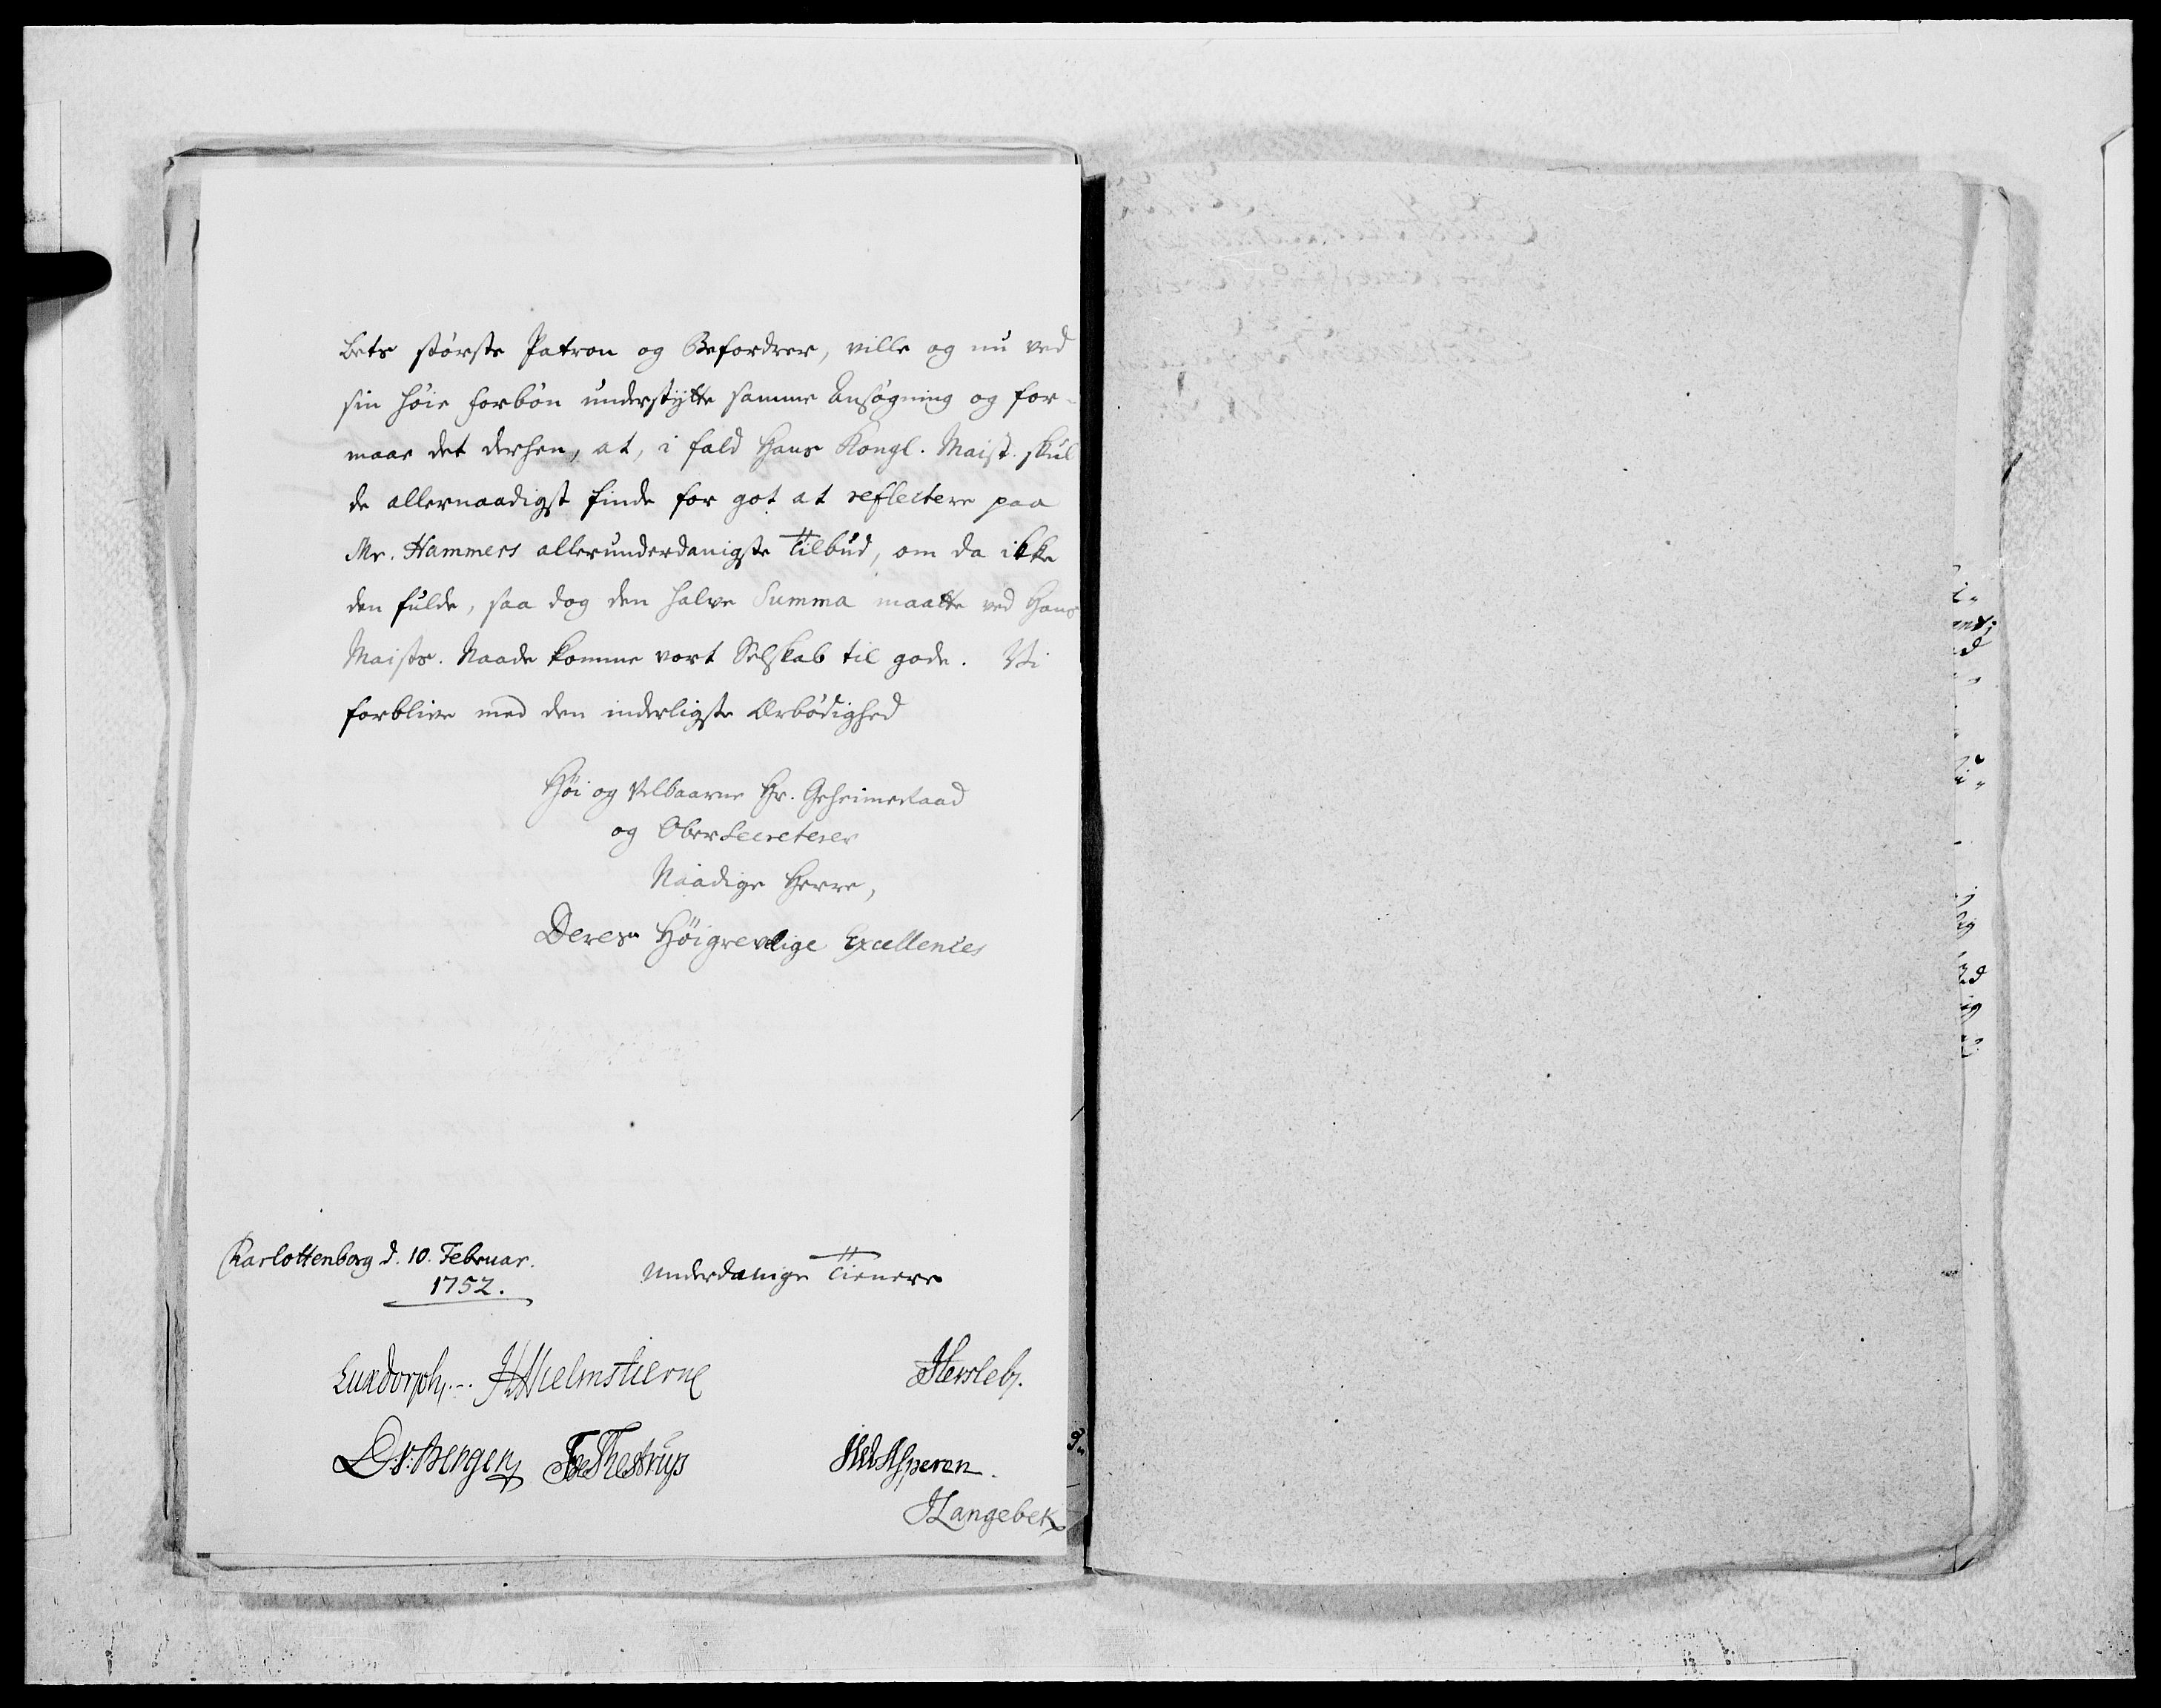 bets störste Patron og Befordrer, ville og nu ved
sin höie Forbön understytte samme Ansögning og for-
maae det derhen, at, i fald Hans Kongl. Maist. skul
de allernaadigst finde for got at reflectere paa
Mr. Hammers allerunderdanigste Tilbud, om da ikke
den fulde, saa dog den halve Summa maatte ved Hans
Maists. Naade komme vort Selskab til gode. Vi
forblive med den inderligste Ærbödighed
Höi og Velbaarne Hr. Geheimeraad
og OberSecreterer
Naadige Herre,
Deres Höigrevelige Excellences
Charlottenborg d. 10. Februar.
1752.
Underdanige Tienere
Luxdorph.
HHielmstierne
Hersleb.
D.v:Bergen
ToeThestrup
Asperen.
JLangebek